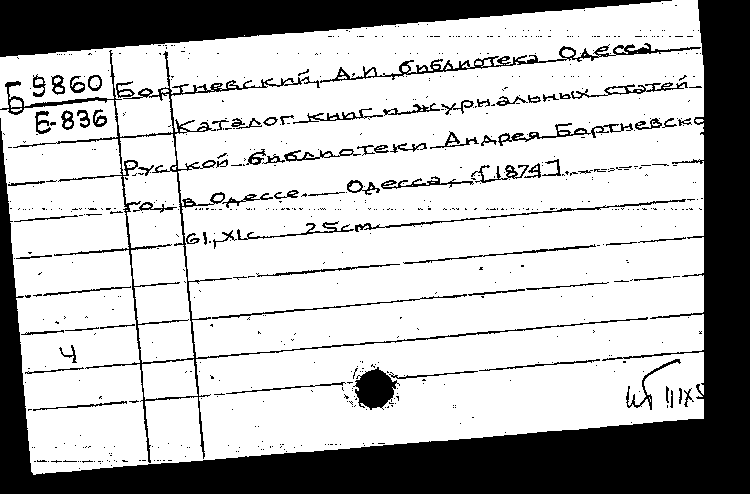 Б 9860
Б-836
Бортневский, А.И., библиотека Одесса.
Каталог книг и журнальных статей
Русской библиотеки Андрея Бортневско
го, в Одессе. Одесса, [1874].
61, XI с. 25 cm
4